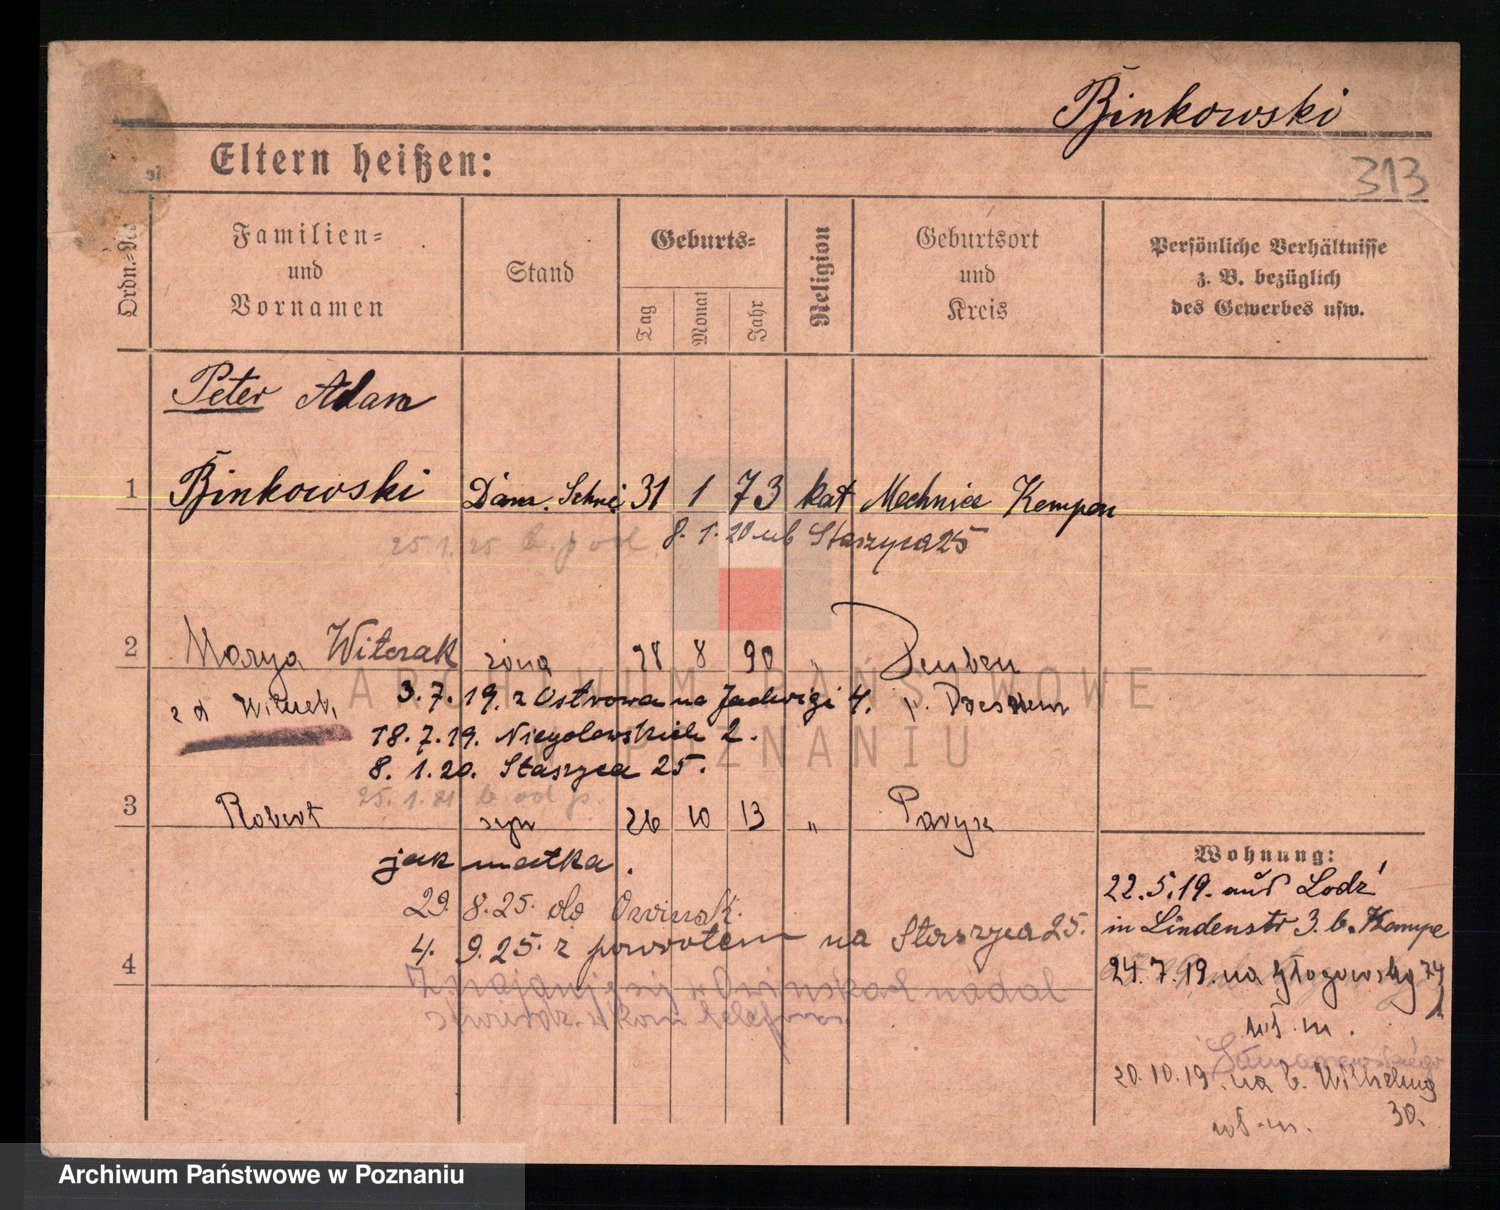 Binkowski
313
Eltern heißen:
Ordn.-Nr.
Familien-
und
Vornamen
Stand
Geburts-
Tag
Monat
Jahr
Religion
Geburtsort
und
Kreis
Persönliche Verhältnisse
z. B. bezüglich
des Gewerbes usw.
Peter Adam
1 Binkowski Dam. Schnei 31 1 73 kat Mechnice Kempen
25.1.25 8.1.20 ub Staszyca 25
2 Marya Witczak żona 28 8 90 " Deuben
3.7.19. z Ostrowa na Jadwigi 4. p. Dresden
18.7.19. Niegolewskich 2.
8.1.20. Staszyca 25.
25.1.21
3 Robert syn 26 10 13 " Paryż
jak matka.
29. 8.25. do Owinsk.
4. 9.25. z powrotem na Staszyca 25.
4 Owinskach nadal
telefon
Wohnung:
22.5.19. aus Lodz
in Lindenstr 3. b. Kempe
24.7.19. na Głogowską 74
ub. m.
20.10.19. na b. Wilhelmą
30.
ub. m.
ARCHIWUM PAŃSTWOWE
W POZNANIU
Archiwum Państwowe w Poznaniu